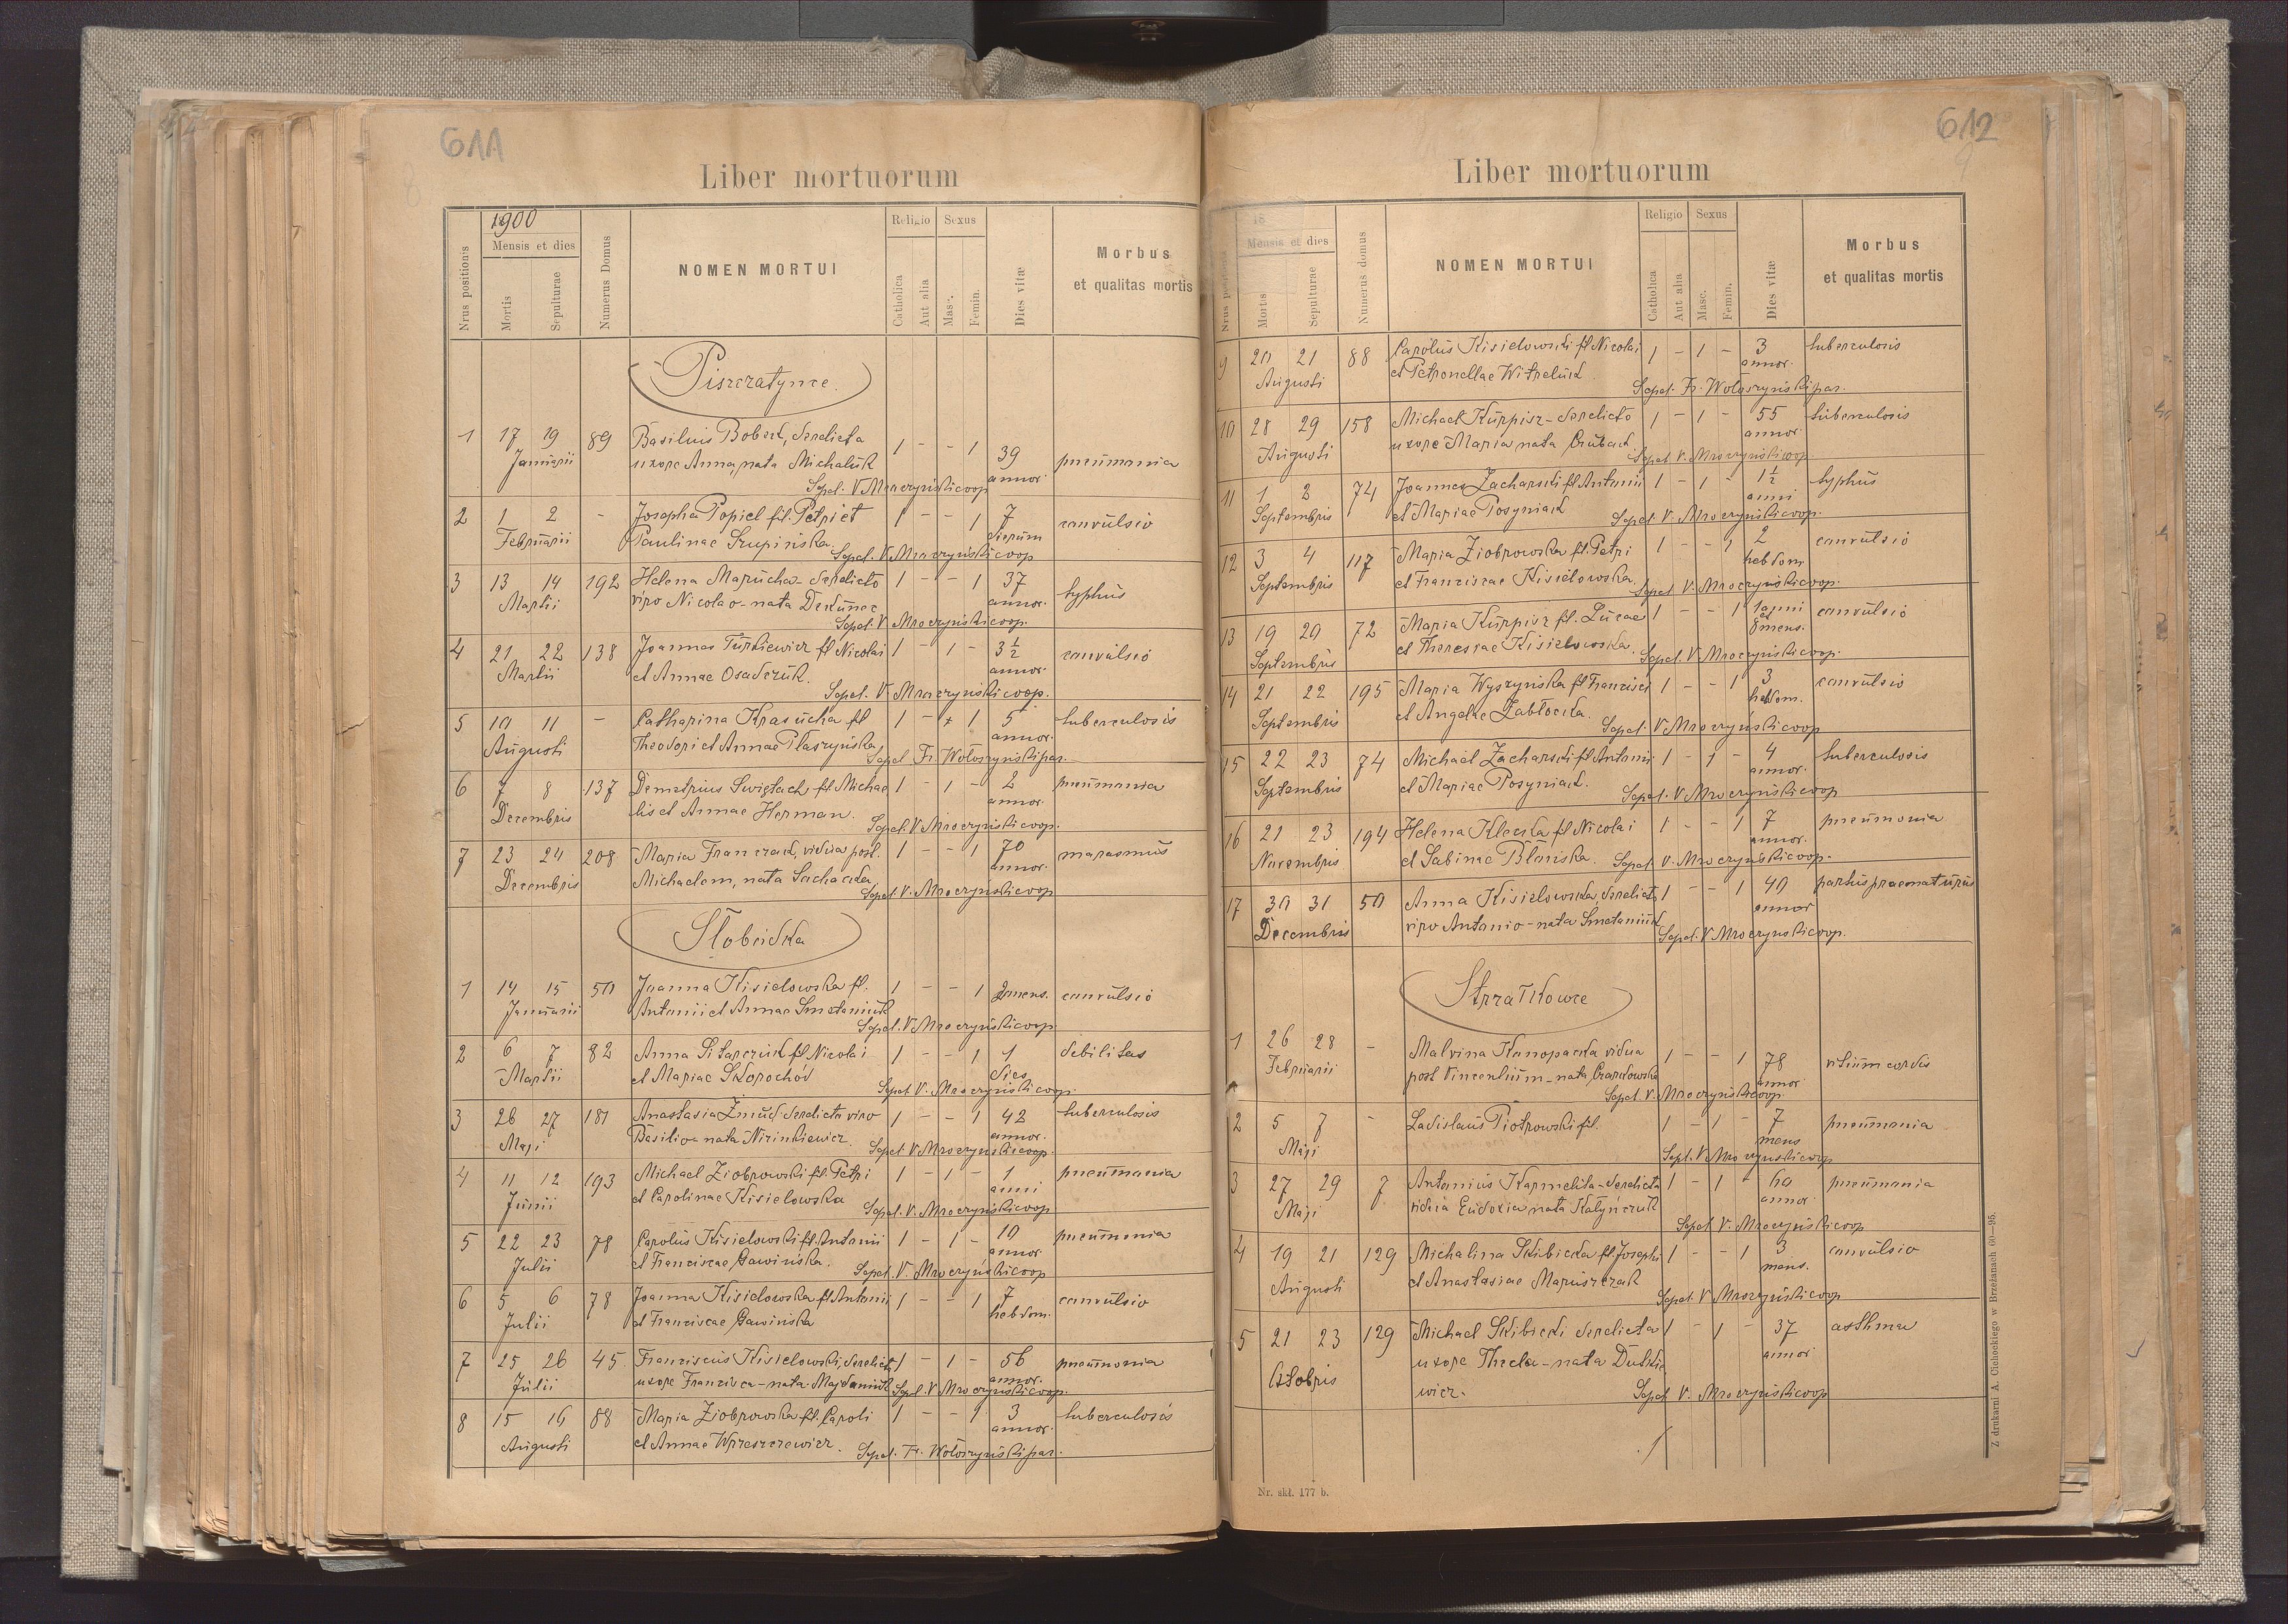 611
Liber mortuorum
1900
Mensis et dies
Nrus positionis
Mortis
Sepulturae
Numerus Domus
NOMEN MORTUI
Religio
Sexus
Catholica
Aut alia
Masc.
Femin.
Dies vitæ
Morbus
et qualitas mortis
Piszczatynce.
1 17 19 89 Basilius Bobek, derelicta 1 - - 1 39 pneumonia
Januarii uxore Anna, nata Michaluk annor.
Sepel. V. Mroczyński coop
2 1 2 - Josepha Popiel fil. Petri et 1 - - 1 7 convulsio
Februarii Paulinae Szupińska. dierum
Sepel. V. Mroczyński coop
3 13 14 192 Helena Marucha - derelicto 1 - - 1 37 typhus
Martii viro Nicolao - nata annor.
Sepel. V. Mroczyński coop.
4 21 22 138 Joannes Turkiewicz fl Nicolai 1 - 1 - 3½ convulsio
Martii et Annae Osadczuk. annor.
Sepel. V. Mroczyński coop.
5 10 11 - Catharina Krasucha fl 1 - + 1 5 tuberculosis
Augusti Theodori et Annae Ptaszyńska annor.
Sepel Fr. Wołoszyński par.
6 7 8 137 Demetrius Świętach fl Michae 1 - 1 - 2 pneumonia
Decembris lis et Annae Herman. annor.
Sepel. V. Mroczyński coop.
7 23 24 208 Maria Franczak, vidua post. 1 - - 1 70 marasmus
Decembris Michaelem, nata Suchacka annor.
Sepel. V. Mroczyński coop
Słobódka
1 14 15 50 Joanna Kisielowska fl. 1 - - 1 2 mens. convulsio
Januarii Antonii et Annae Smetaniuk
Sepel. V. Mroczyński coop
2 6 7 82 Anna Sitarczuk fl Nicolai 1 - - 1 1 debilitas
Martii et Mariae Skorochód dies
Sepel. V. Mroczyński coop.
3 26 27 181 Anastasia Żmud derelicto viro 1 - - 1 42 tuberculosis
Maji Basilio - nata annor.
Sepel. V. Mroczyński coop.
4 11 12 193 Michael Ziobrowski fl. Petri 1 - 1 - 1 pneumonia
Junii et Carolinae Kisielowska anni
Sepel. V. Mroczyński coop
5 22 23 78 Carolus Kisielowski fl. Antonii 1 - 1 - 10 pneumonia
Julii et Franciscae Gawińska. annor
Sepel. V. Mroczyński coop
6 5 6 78 Joanna Kisielowska fl Antonii 1 - - 1 7 convulsio
Julii et Franciscae Gawińska hebdom.
7 25 26 45. Franciscus Kisielowski, derelicta 1 - 1 - 56 pneumonia
Julii uxore Francisca - nata Majdaniuk annor.
Sepel. V. Mroczyński coop.
8 15 16 88 Maria Ziobrowska fl. Caroli 1 - - 1 3 tuberculosis
Augusti et Annae Wreszczewicz. annor.
Sepel. Fr. Wołoszyński par.
612
9
Liber mortuorum
18
Mensis et dies
Nrus positionis
Mortis
Sepulturae
Numerus domus
NOMEN MORTUI
Religio
Sexus
Catholica
Aut alia
Masc.
Femin.
Dies vitæ
Morbus
et qualitas mortis
9 20 21 88 Carolus Kisielowski fl Nicolai 1 - 1 - 3 tuberculosis
Augusti et Petronellae Witreluk annor.
Sepel. Fr. Wołoszyński par.
10 28 29 158 Michael Kurpisz - derelicto 1 - 1 - 55 tuberculosis
Augusti uxore Maria nata annor.
Sepel. V. Mroczyński coop
11 1 2 74 Joannes Zacharski fl Antonii 1 - 1 - 1½ typhus
Septembris et Mariae Posyniak anni
Sepel. V. Mroczyński coop.
12 3 4 117 Maria Ziobrowska fl. Petri 1 - - 1 2 convulsio
Septembris et Franciscae Kisielowska. hebdom
Sepel. V. Mroczyński coop.
13 19 20 72 Maria Kurpisz fl. Lucae 1 - - 1 1 anni et convulsio
Septembris et Theresiae Kisielowska. 8 mens.
Sepel. V. Mroczyński coop.
14 21 22 195 Maria Wyszyńska fl Francisci 1 - - 1 3 convulsio
Septembris et Angelae Zabłocka. hebdom.
Sepel. V. Mroczyński coop
15 22 23 74 Michael Zacharski fl Antonii 1 - 1 - 4 tuberculosis
Septembris et Mariae Posyniak. annor.
Sepel. V. Mroczyński coop
16 21 23 194 Helena Klecka fl Nicolai 1 - - 1 7 pneumonia
Novembris et Sabinae Błońska. annor.
Sepel. V. Mroczyński coop.
17 30 31 50 Anna Kisielowska, derelicto 1 - - 1 40 partus praematurus
Decembris viro Antonio - nata Smetaniuk annor
Sepel. V. Mroczyński coop.
Strzałkowce
1 26 28 - Malvina Konopacka vidua 1 - - 1 78 vitium cordis
Februarii post Vincentium - nata annor.
Sepel. V. Mroczyński coop.
2 5 7 - Ladislaus Piotrowski fl. 1 - 1 - 7 pneumonia
Maji mens
Sepl. V. Mroczyński coop
3 27 29 7 Antonius Karmelita - derelicta 1 - 1 - 60 pneumonia
Maji vidua Eudoxia nata Kałyńczuk annor
Sepel V. Mroczyński coop
4 19 21 129 Michalina Skibicka fl. Josephi 1 - - 1 3 convulsio
Augusti et Anastasiae Maruszczak mens.
Sepel. V. Mroczyński coop
5 21 23 129 Michael Skibicki derelicta 1 - 1 - 37 asthma
Octobris uxore Thecla - nata Dutkie annor
wicz. Sepel V. Mroczyński coop
Nr. skł. 177 b.
Z drukarni A. Cichockiego w Brzeżanach 60—95.